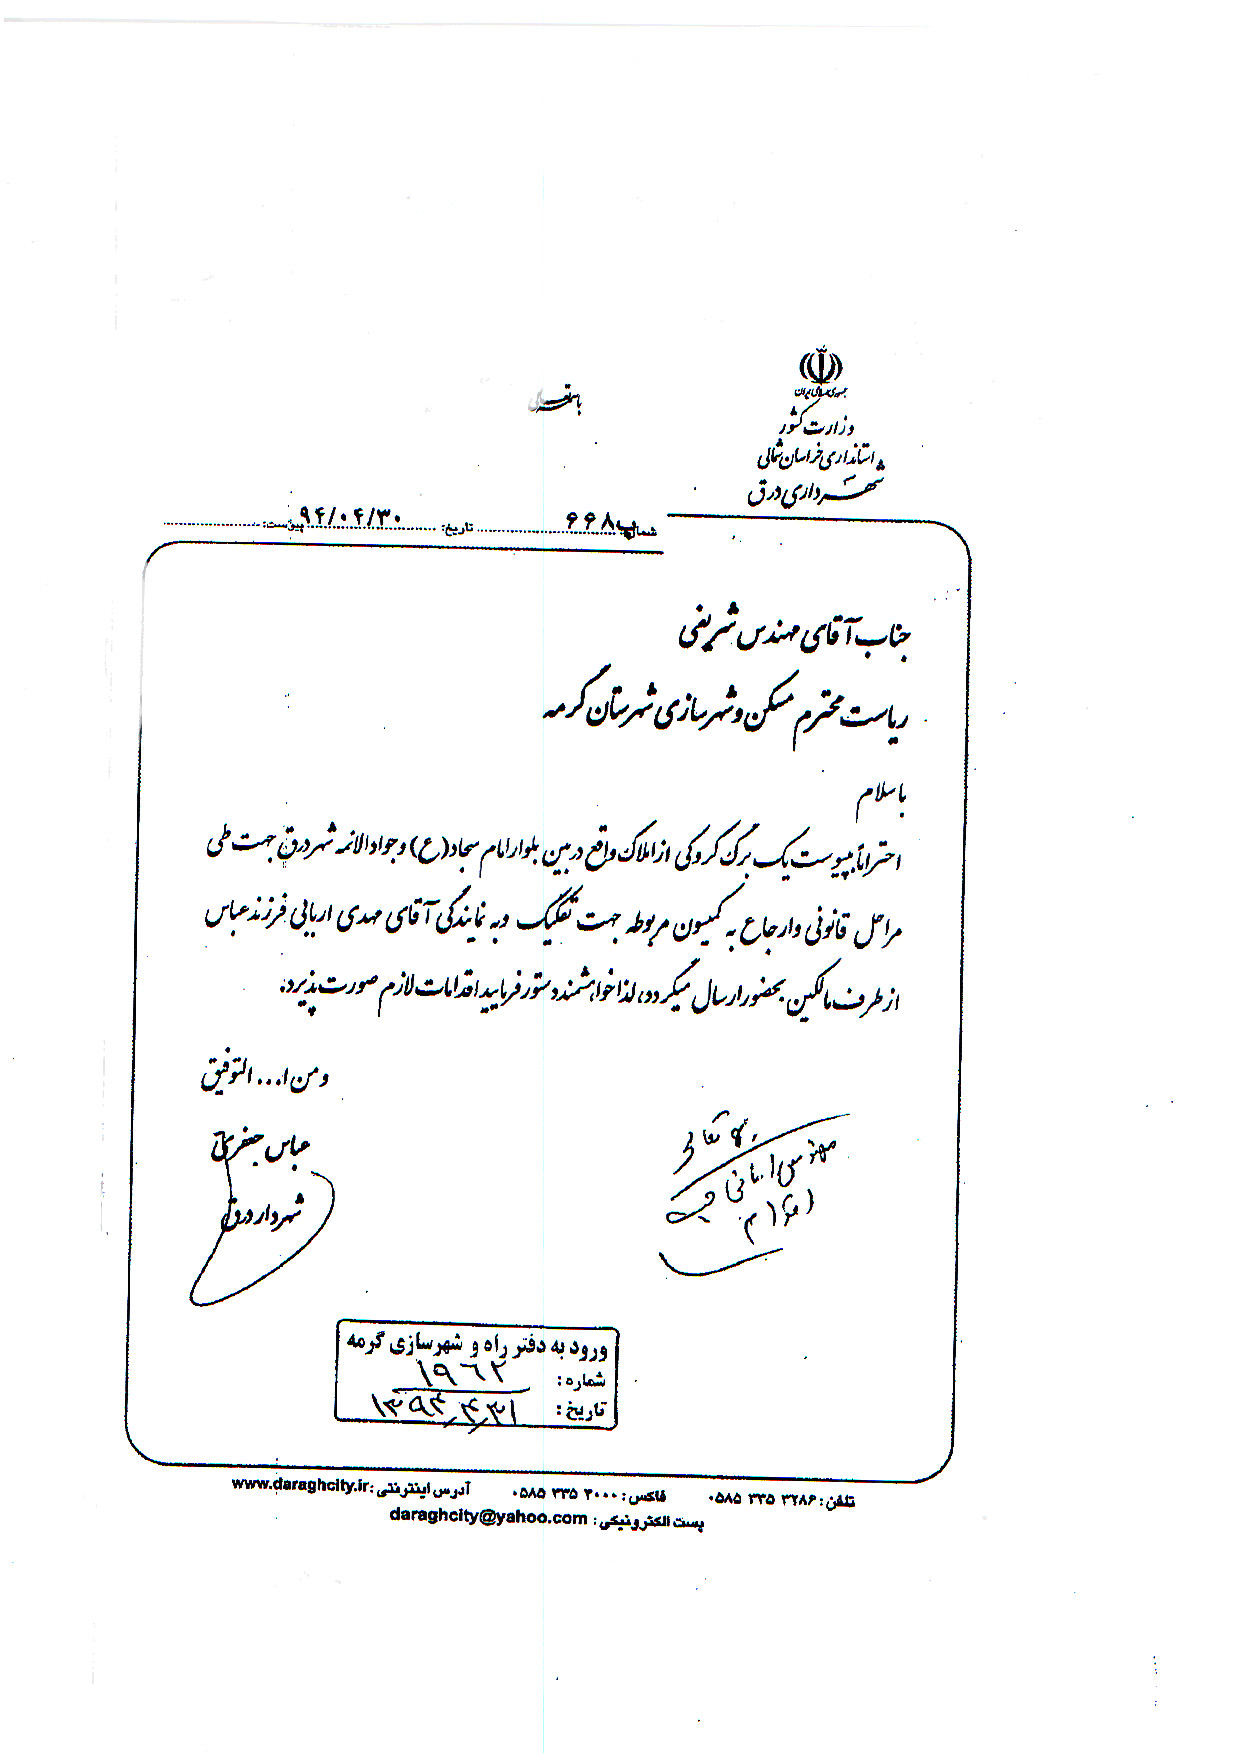 باسمه تعالی
جمهوری اسلامی ایران
وزارت کشور
استانداری خراسان شمالی
شهرداری درق
شماره: پ ۶۶۸ تاریخ: ۹۴/۰۴/۳۰ پیوست:
جناب آقای مهندس شریفی
ریاست محترم مسکن و شهرسازی شهرستان گرمه
باسلام
احتراماً بپیوست یک برگ کروکی از املاک واقع در بین بلوار امام سجاد(ع) و جوادالائمه شهر درق جهت طی
مراحل قانونی وارجاع به کمیسون مربوطه جهت تفکیک وبه نمایندگی آقای مهدی اربابی فرزند عباس
از طرف مالکین بحضور ارسال میگردد، لذا خواهشمند دستور فرمایید اقدامات لازم صورت پذیرد.
ومن ا... التوفیق
عباس جعفری
شهردار درق
بسمه تعالی
مهندس امانی
اقدام
ورود به دفتر راه و شهرسازی گرمه
شماره: ۱۹۶۲
تاریخ: ۱۳۹۴/۴/۳۱
تلفن: ۳۲۸۶ ۳۳۵ ۰۵۸۵ فاکس: ۲۰۰۰ ۳۳۵ ۰۵۸۵ آدرس اینترنتی: www.daraghcity.ir
پست الکترونیکی: daraghcity@yahoo.com